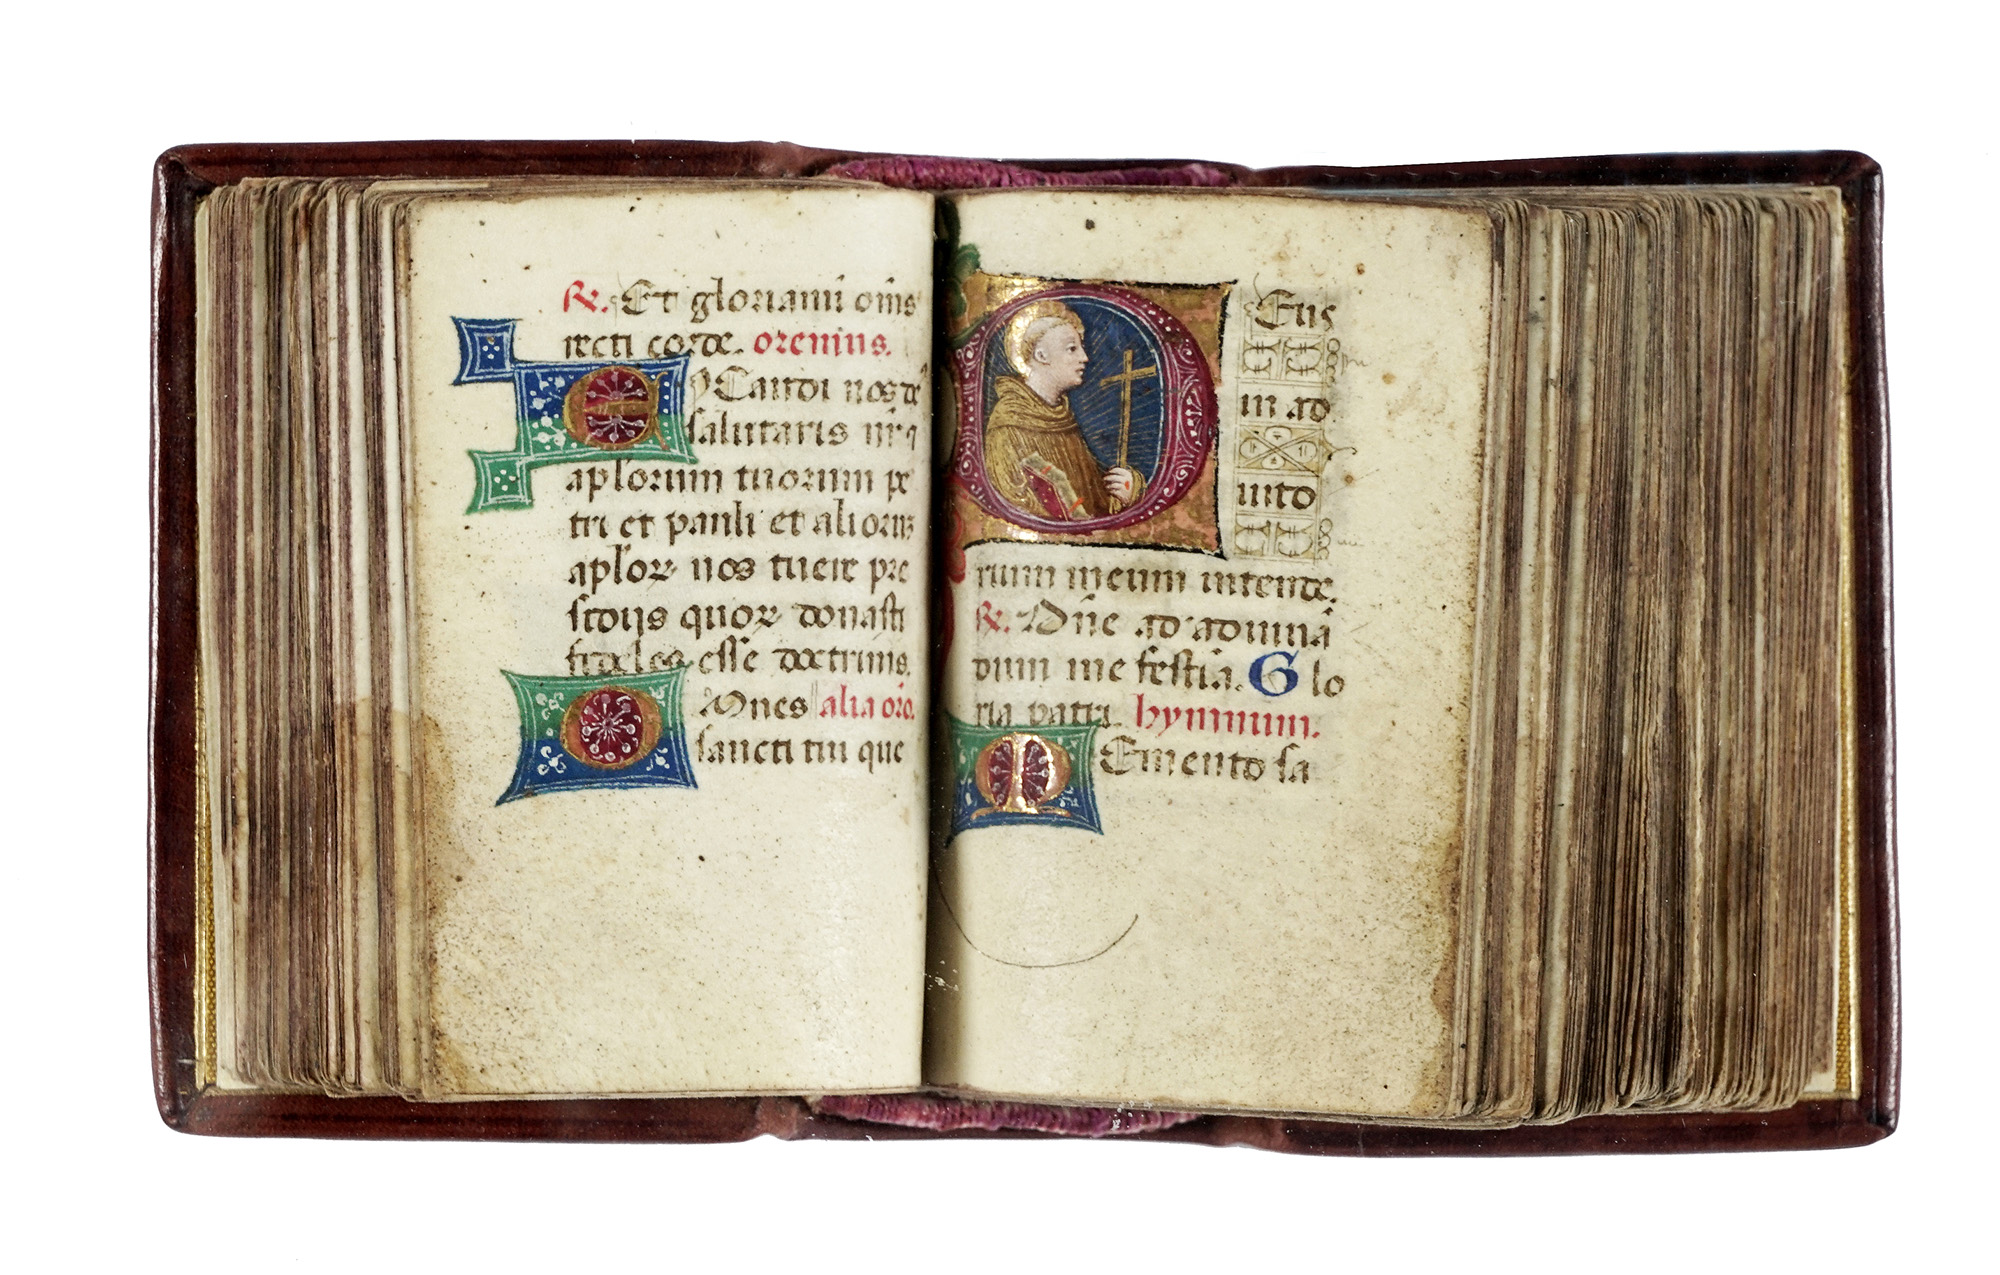 ℟. Et gloriami om̄s
recti corde. oremus.
EXaudi nos deꝰ
salutaris nr̄ ꝛ
apl'orum tuorum pe
tri et pauli et aliorum
apl'oꝝ nos tuere pre
sidijs quoꝝ donasti
fideles esse doctrinis.
Omnes alia oro.
sancti tui que
DEus
in ad
iuto
rium meum intende.
℟. Dn̄e ad adiuuā
dum me festina. Glo
ria patri. hymnum.
MEmento sa